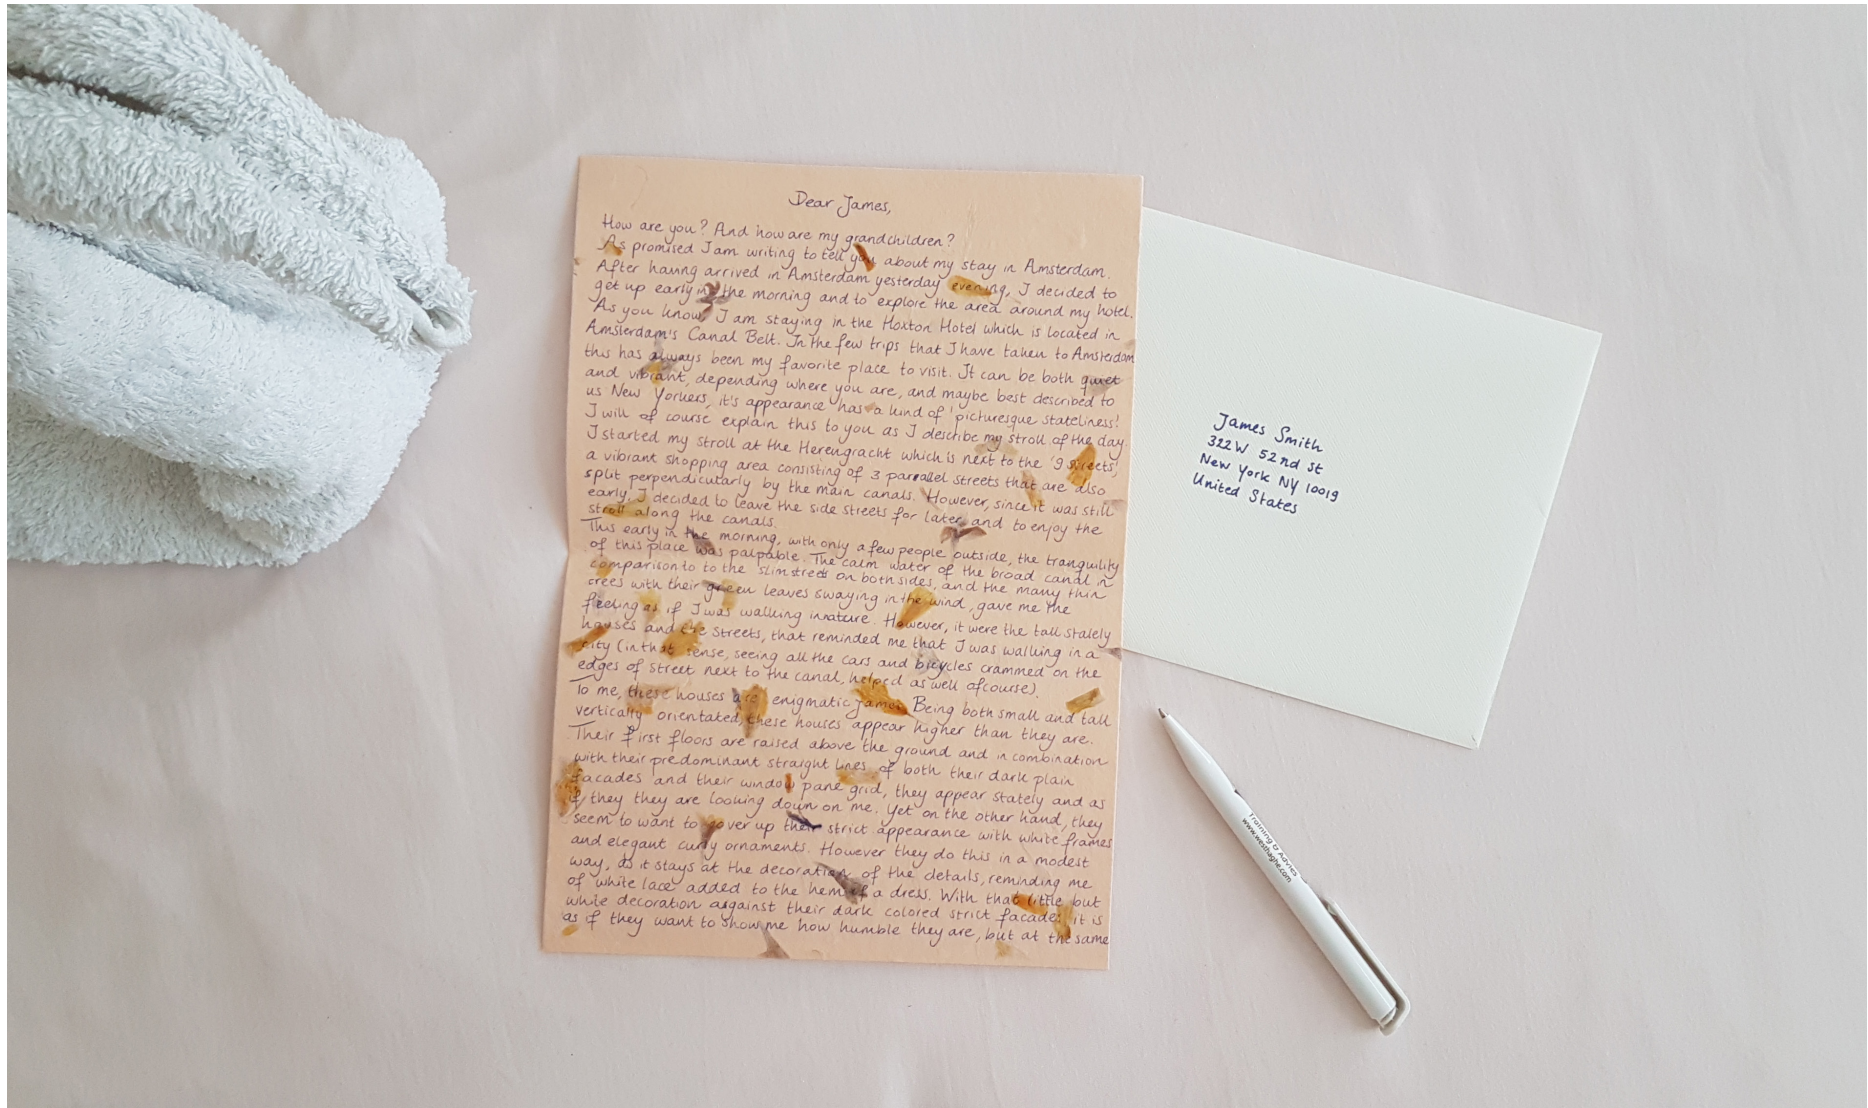 Dear James,
How are you? And how are my grandchildren?
As promised I am writing to tell you about my stay in Amsterdam.
After having arrived in Amsterdam yesterday evening, I decided to
get up early in the morning and to explore the area around my hotel.
As you know, I am staying in the Hoxton Hotel which is located in
Amsterdam's Canal Belt. In the few trips that I have taken to Amsterdam
this has always been my favorite place to visit. It can be both quiet
and vibrant, depending where you are, and maybe best described to
us New Yorkers, it's appearance has a kind of 'picturesque stateliness!
I will of course explain this to you as I describe my stroll of the day.
I started my stroll at the Herengracht which is next to the '9 streets',
a vibrant shopping area consisting of 3 parallel streets that are also
split perpendicularly by the main canals. However, since it was still
early, I decided to leave the side streets for later and to enjoy the
stroll along the canals.
This early in the morning, with only a few people outside, the tranquility
of this place was palpable. The calm water of the broad canal in
comparison to to the slim streets on both sides, and the many thin
trees with their green leaves swaying in the wind, gave me the
feeling as if I was walking in nature. However, it were the tall stately
houses and the streets, that reminded me that I was walking in a
city (in that sense, seeing all the cars and bicycles crammed on the
edges of street next to the canal, helped as well ofcourse).
To me, these houses are enigmatic James. Being both small and tall
vertically orientated, these houses appear higher than they are.
Their first floors are raised above the ground and in combination
with their predominant straight lines of both their dark plain
facades and their window pane grid, they appear stately and as
if they they are looking down on me. Yet on the other hand, they
seem to want to cover up their strict appearance with white frames
and elegant curly ornaments. However they do this in a modest
way, as it stays at the decoration of the details, reminding me
of white lace added to the hem of a dress. With that little but
white decoration against their dark colored strict facades it is
as if they want to show me how humble they are, but at the same
James Smith
322 W 52nd St
New York NY 10019
United States
Training & Advies
www.westhaghe.com